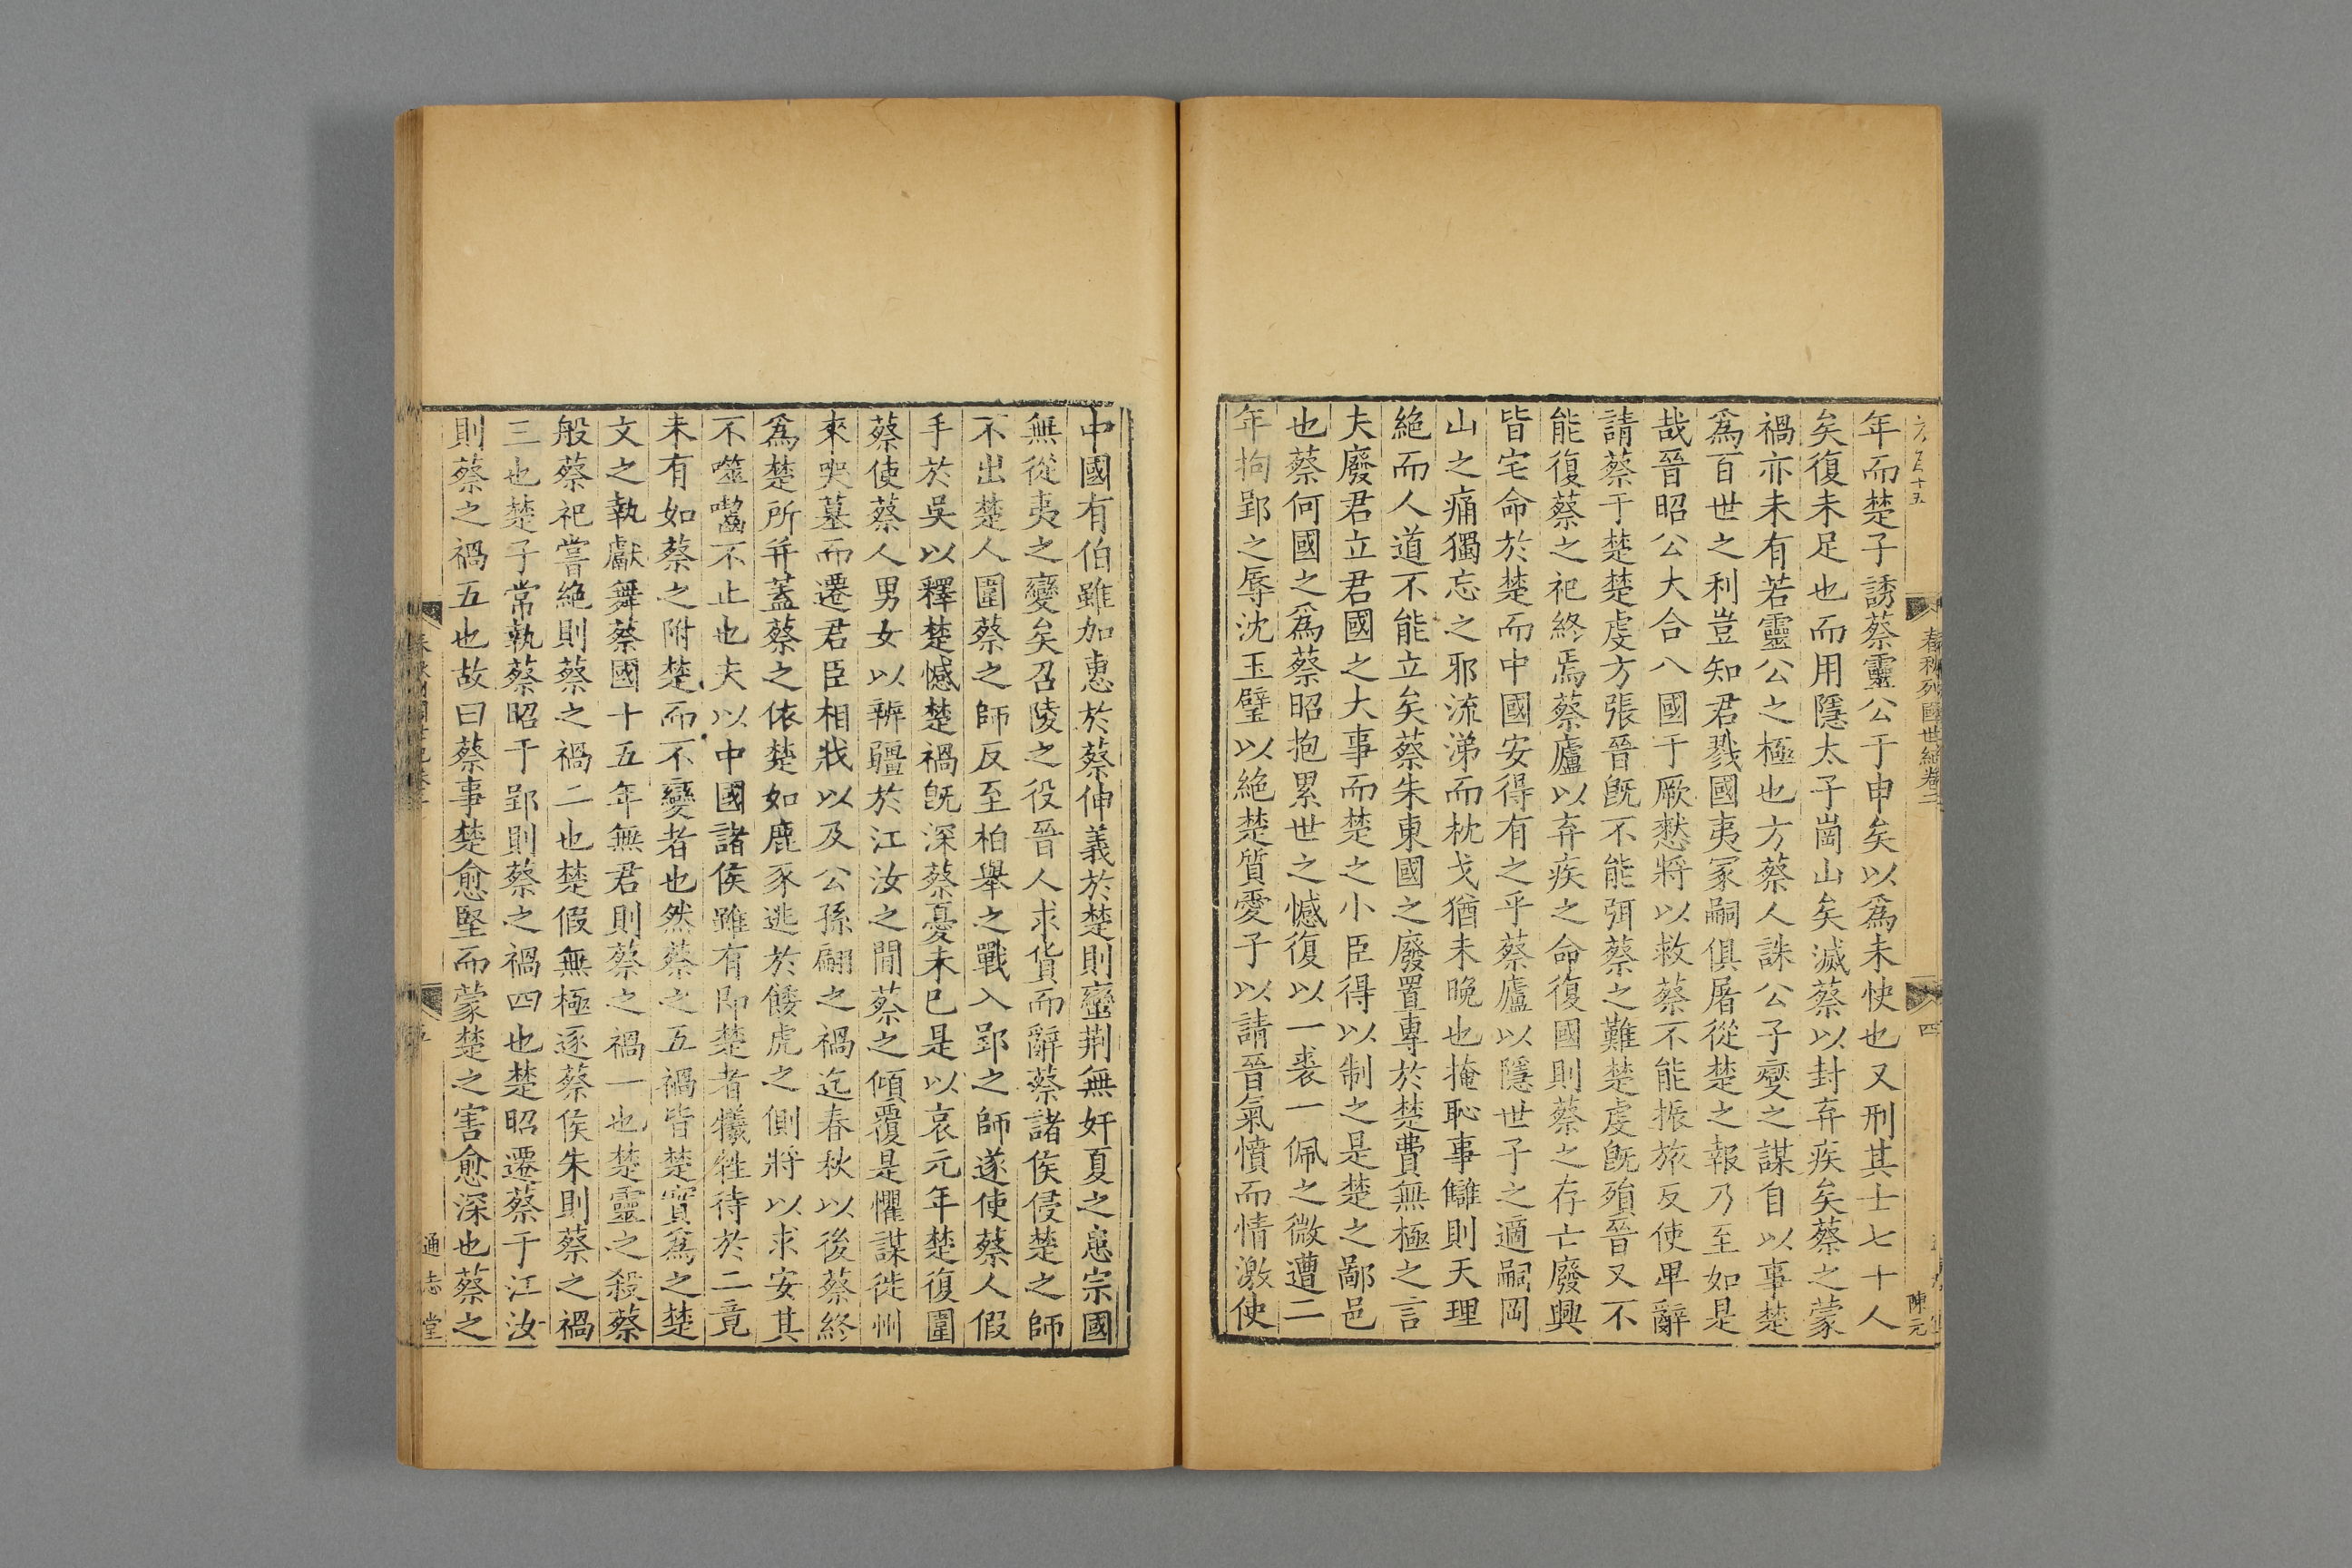 春秋列國世紀卷二
四
陳元
年而楚子誘蔡靈公于申矣以爲未快也又刑其士七十人
矣復未足也而用隱太子崗山矣滅蔡以封弃疾矣蔡之蒙
禍亦未有若靈公之極也方蔡人誅公子燮之謀自以事楚
爲百世之利豈知君戮國夷冢嗣俱屠從楚之報乃至如是
哉晉昭公大合八國于厥憖將以救蔡不能振旅反使卑辭
請蔡于楚楚虔方張晉旣不能弭蔡之難楚虔旣殞晉又不
能復蔡之祀終焉蔡廬以弃疾之命復國則蔡之存亡廢興
皆宅命於楚而中國安得有之乎蔡廬以隱世子之適嗣岡
山之痛獨忘之邪流涕而枕戈猶未晚也掩恥事讎則天理
絶而人道不能立矣蔡朱東國之廢置專於楚費無極之言
夫廢君立君國之大事而楚之小臣得以制之是楚之鄙邑
也蔡何國之爲蔡昭抱累世之憾復以一裘一佩之微遭二
年拘郢之辱沈玉璧以絶楚質愛子以請晉氣憤而情激使
中國有伯雖加惠於蔡伸義於楚則蠻荆無奸夏之患宗國
無從夷之變矣召陵之役晉人求貨而辭蔡諸侯侵楚之師
不出楚人圍蔡之師反至柏舉之戰入郢之師遂使蔡人假
手於吳以釋楚憾楚禍旣深蔡憂未已是以哀元年楚復圍
蔡使蔡人男女以辨疆於江汝之間蔡之傾覆是懼謀徙州
來哭墓而遷君臣相戕以及公孫翩之禍迄春秋以後蔡終
爲楚所并蓋蔡之依楚如鹿豕逃於餧虎之側將以求安其
不噬齧不止也夫以中國諸侯雖有即楚者犧牲待於二竟
未有如蔡之附楚而不變者也然蔡之五禍皆楚實爲之楚
文之執獻舞蔡國十五年無君則蔡之禍一也楚靈之殺蔡
般蔡祀嘗絶則蔡之禍二也楚假無極逐蔡侯朱則蔡之禍
三也楚子常執蔡昭于郢則蔡之禍四也楚昭遷蔡于江汝
則蔡之禍五也故曰蔡事楚愈堅而蒙楚之害愈深也蔡之
通志堂